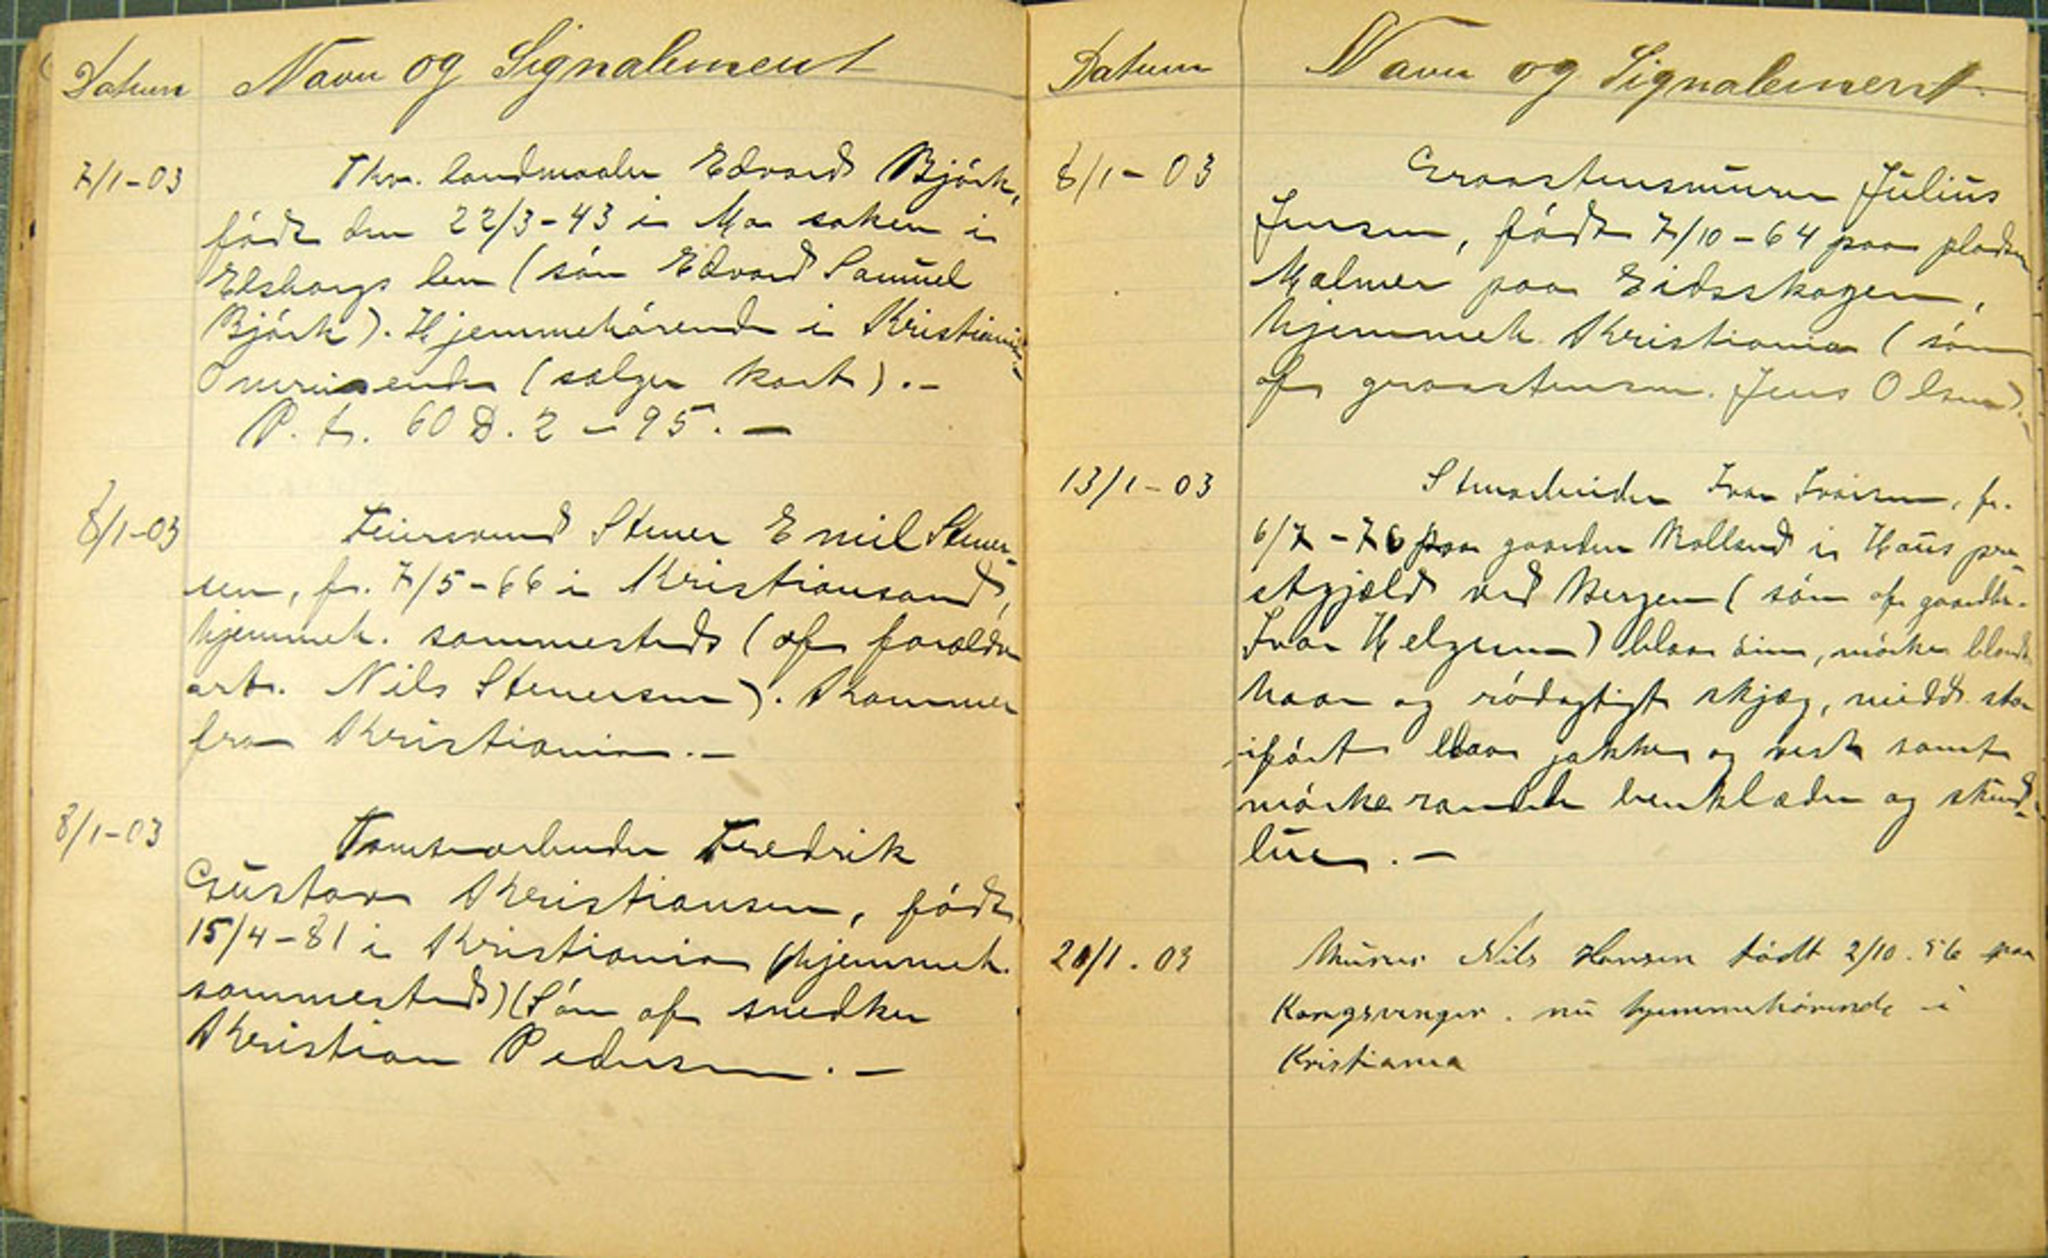 Datum Navn og Signalement
7/1-03 Fhv. landmaaler Edvard Björk,
födt den 22/3-43 i Mo soken i
Elsborgs len (sön Edvard Samuel
Björk). Hjemmehörende i Kristiania
Omreisende (sælger kort).-
P. t. 60 D. 2 - 95.-
8/1-03 Feiersvend Stener Emil Stener-
sen, f. 7/5-66 i Kristiansand,
hjemmeh. sammesteds (af forældre
arb. Nils Stenersen). Kommer
fra Kristiania.-
8/1-03 Tomtearbeider Fredrik
Gustav Kristiansen, födt
15/4-81 i Kristiania (hjemmeh.
sammesteds) (Sön af snedker
Kristian Pedersen.-
Datum Navn og Signalement
8/1-03 Graastensmurer Julius
Jensen, födt 7/10-64 paa pladsen
Malmer paa Eidsskogen,
hjemmeh. Kristiania (sön
af graastensm. Jens Olsen).
13/1-03 Stenarbeider Ivar Ivarsen, f.
6/7-76 paa gaarden Molland i Haus pre-
stgjæld ved Bergen (sön af gaardbr.
Ivar Helgesen) blaa öine, mörke blonde
haar og rödagtigt skjæg, midd. stor
iført blaa jakke og vest samt
mörke randede benklæder og skind-
lue.-
20/1.03 Murer Nils Hansen födt 2/10.56 paa
Kongsvinger. nu hjemmehörende i
Kristiania